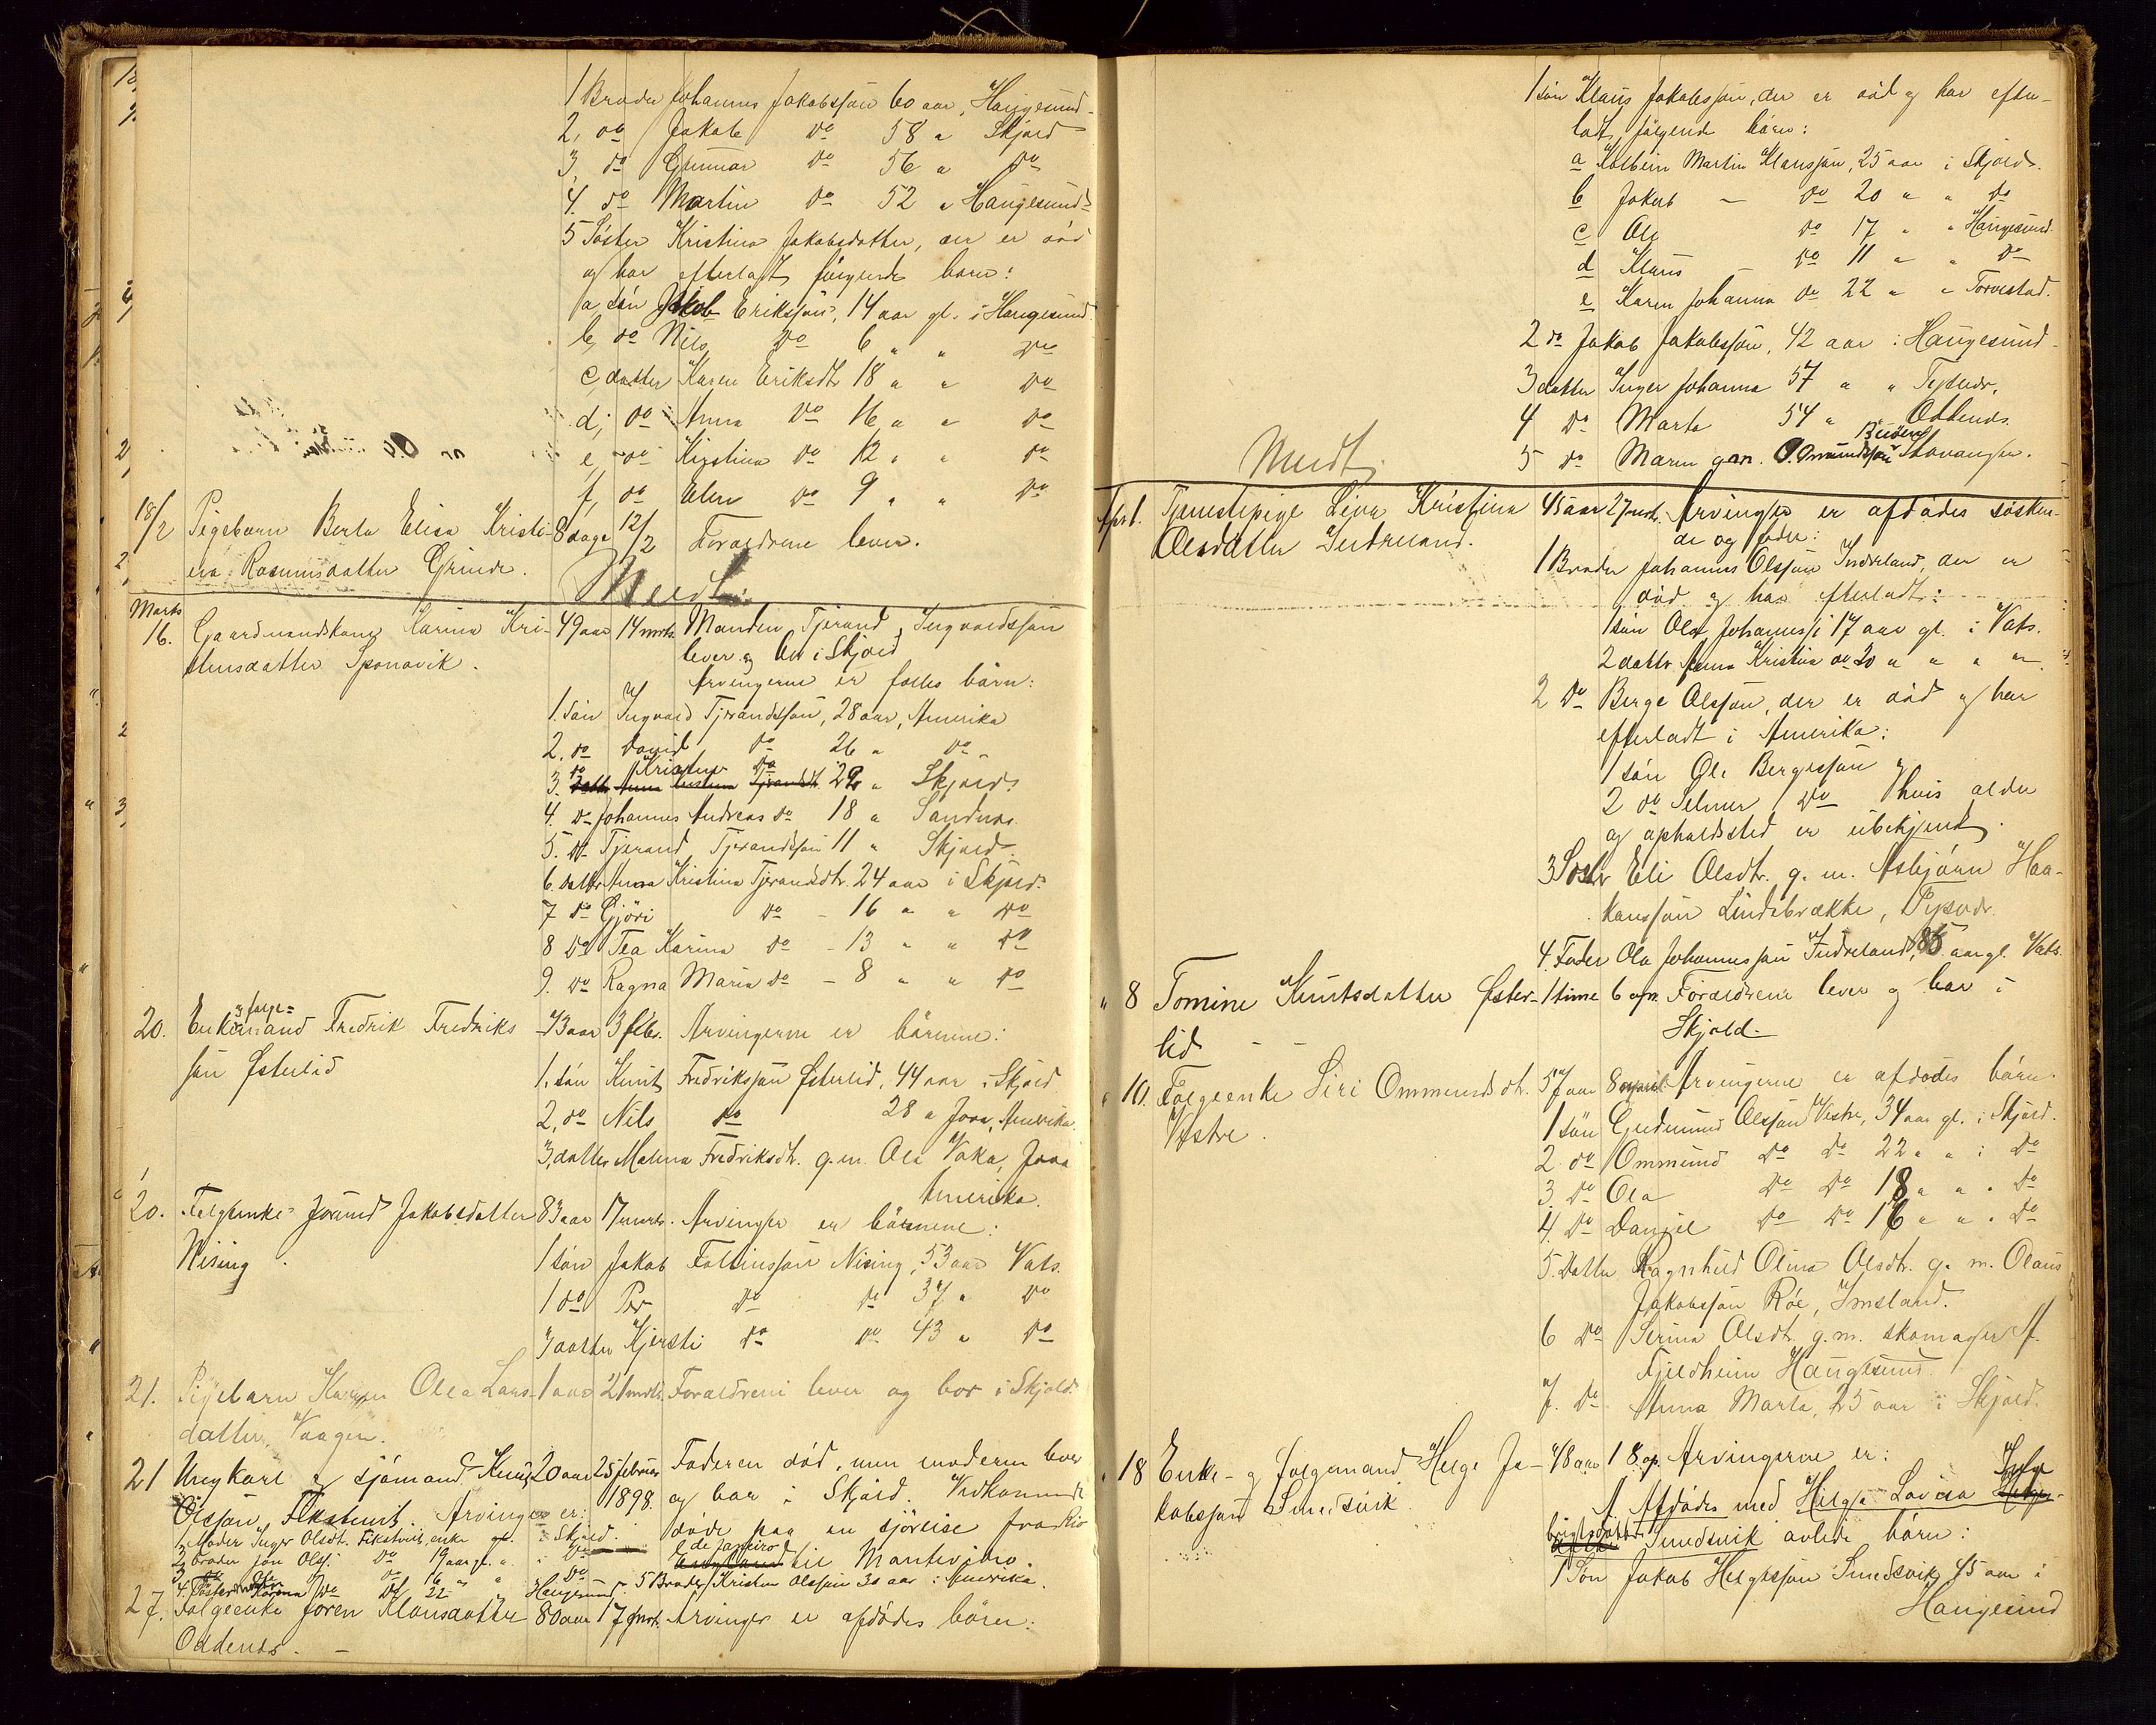 1 Broder Johannes Jakobssøn 60 aar, Haugesund
2, do Jakob do 58 " Skjold
3, do Gunnar do 56 " do
4. do Martin do 52 " Haugesund
5 Søster Kristina Jakobsdatter, der er død
og har efterladt følgende børn:
a, søn Jakob Erikssøn, 14 aar gl. i Haugesund
b, do Nils do 6 " " do
c, datter Karen Eriksdtr 18 " " do
d, do Anna do 16 " " do
e, do Kristina do 12 " " do
f, do Elen do 9 " " do
18/2 Pigebarn Berta Elisa Kristi- 8 dage 12/2 Forældrene lever.
na Rasmusdatter Grinde.
Meedt:
Marts
16. Gaardmandskone Karina Kri- 49 aar 14 mrts. Manden Tjerand Ingvaldssøn
stensdatter Sponavik. lever og bor i Skjold
Arvingerne er fælles børn:
1. Søn Ingvald Tjerandssøn, 28 aar, Amerika
2. do David do 26 " do
3. do Kristen do 22 " Skjold
4. do Johannes Andreas do 18 " Sandnes
5. do Tjerand Tjerandssøn 11 " Skjold
6 datter Anna Kristina Tjerandsdtr. 24 aar i Skjold
7 do Gjøri do - 16 " " do
8 do Tea Karina do - 13 " " do
9. do Ragna Maria do - 8 " " do
20. Enke og folge= mand Fredrik Fredriks 73 aar 3 febr. Arvingerne er børnene:
søn Østerlid
1. søn Knut Fredrikssøn Østerlid, 44 aar i Skjold
2, do Nils do 28 " Jova, Amerika
3, datter Malena Fredriksdtr. g.m. Ole Vaka, Jova
Amerika.
20. Følgeenke Jorund Jakobsdatter 83 aar 17 mrts. Arvinger er børnene:
Nising.
1 søn Jakob Nising, 53 aar Vats.
1 do Per do do 37 " do
3 datter Kjersti do do 43 " do
21. Pigebarn Karen Olea Lars- 1 aar 21 mrts. Forældrene lever og bor i Skjold
datter Vaagen.
21 Ungkarl og sjømand Knut 20 aar 25 februar Faderen død, men moderen lever
Olssøn Fikstveit. Arvinger er: 1898. og bor i Skjold. Vedkommende
1 Moder Inger Olsdt. Fikstveit, enke i Skjold. døde paa en sjøreise fra Rio
2, broder Jon Olss. do 19 aar gl. i do de Janeiro til Montevideo.
3 do do 16 " " do
4. Søster Karina do do 22 " Haugesund. 5 Broder Kristen Olssøn 30 aar i Amerika.
27. Følgeenke Joren Klausdatter 80 aar 17 mrts. Arvinger er afdødes børn:
Oddenes.
1 søn Klaus Jakobssøn, der er død og har efter-
ladt følgende børn:
a Kolbein Martin Klaussøn, 25 aar i Skjold.
b Jakob - do 20 " " do
c Ole do 17 " " Haugesund
d Klaus - do 11 " " do
e Karen Johanna do 22 " " Torvestad.
2 do Jakob Jakobssøn, 42 aar i Haugesund
3 datter Inger Johanna 57 " "
4 do Marta 54 " " Oddenes.
5 do Maren g.m. O. Omundssøn Stavanger.
Meedt
April. Tjenestepige Lina Kristina 45 aar 27 mrts. Arvinger er afdødes søsken-
Olsdatter Indreland. de og fader:
1 Broder Johannes Olssøn Indreland, der er
død og har efterladt:
1 søn Ola Johanness. 17 aar gl. i Vats.
2 datter Anna Kristina do 20 " " " "
2 do Berge Olssøn, der er død og har
efterladt i Amerika:
1 søn Ole Bergessøn og
2 do Selmer do hvis alder
og opholdssted er ubekjendt.
3 Søster Eli Olsdtr. g. m. Asbjørn Haa-
kanssøn Lindebrække,
4. Fader Ola Johannessøn Indreland, 85 aar gl. Vats
" 8 Tomine Knutsdatter Øster- 1 time 6 apr. Forældrene lever og bor i
lid - - Skjold
" 10. Følgeenke Siri Ommundsdtr. 57 aar 8 april Arvingerne er afdødes børn.
Vestre.
1 søn Gudmund Olssøn Vestre, 34 aar gl. i Skjold.
2 do Ommund do do 22 " " i do
3, do Ola do do 18 " " " do
4. do Daniel do do 16 " " " do
5. datter Ragnhild Olina Olsdtr. g. m. Olaus
Jakobssøn Røe, Imsland.
6 do Serina Olsdtr. g.m. skomager A.
Fjeldheim Haugesund
7. do Anna Marta, 25 aar i Skjold.
" 18 Enke- og følgemand Helge Ja- 78 aar 18 ap. Arvingerne er:
kobssøn Smedsvik
A Afdødes med Helga Lovisa Inge-
brigtsdatter Smedsvik avlede børn:
1 Søn Jakob Helgessøn Smedsvik 45 aar i
Haugesund